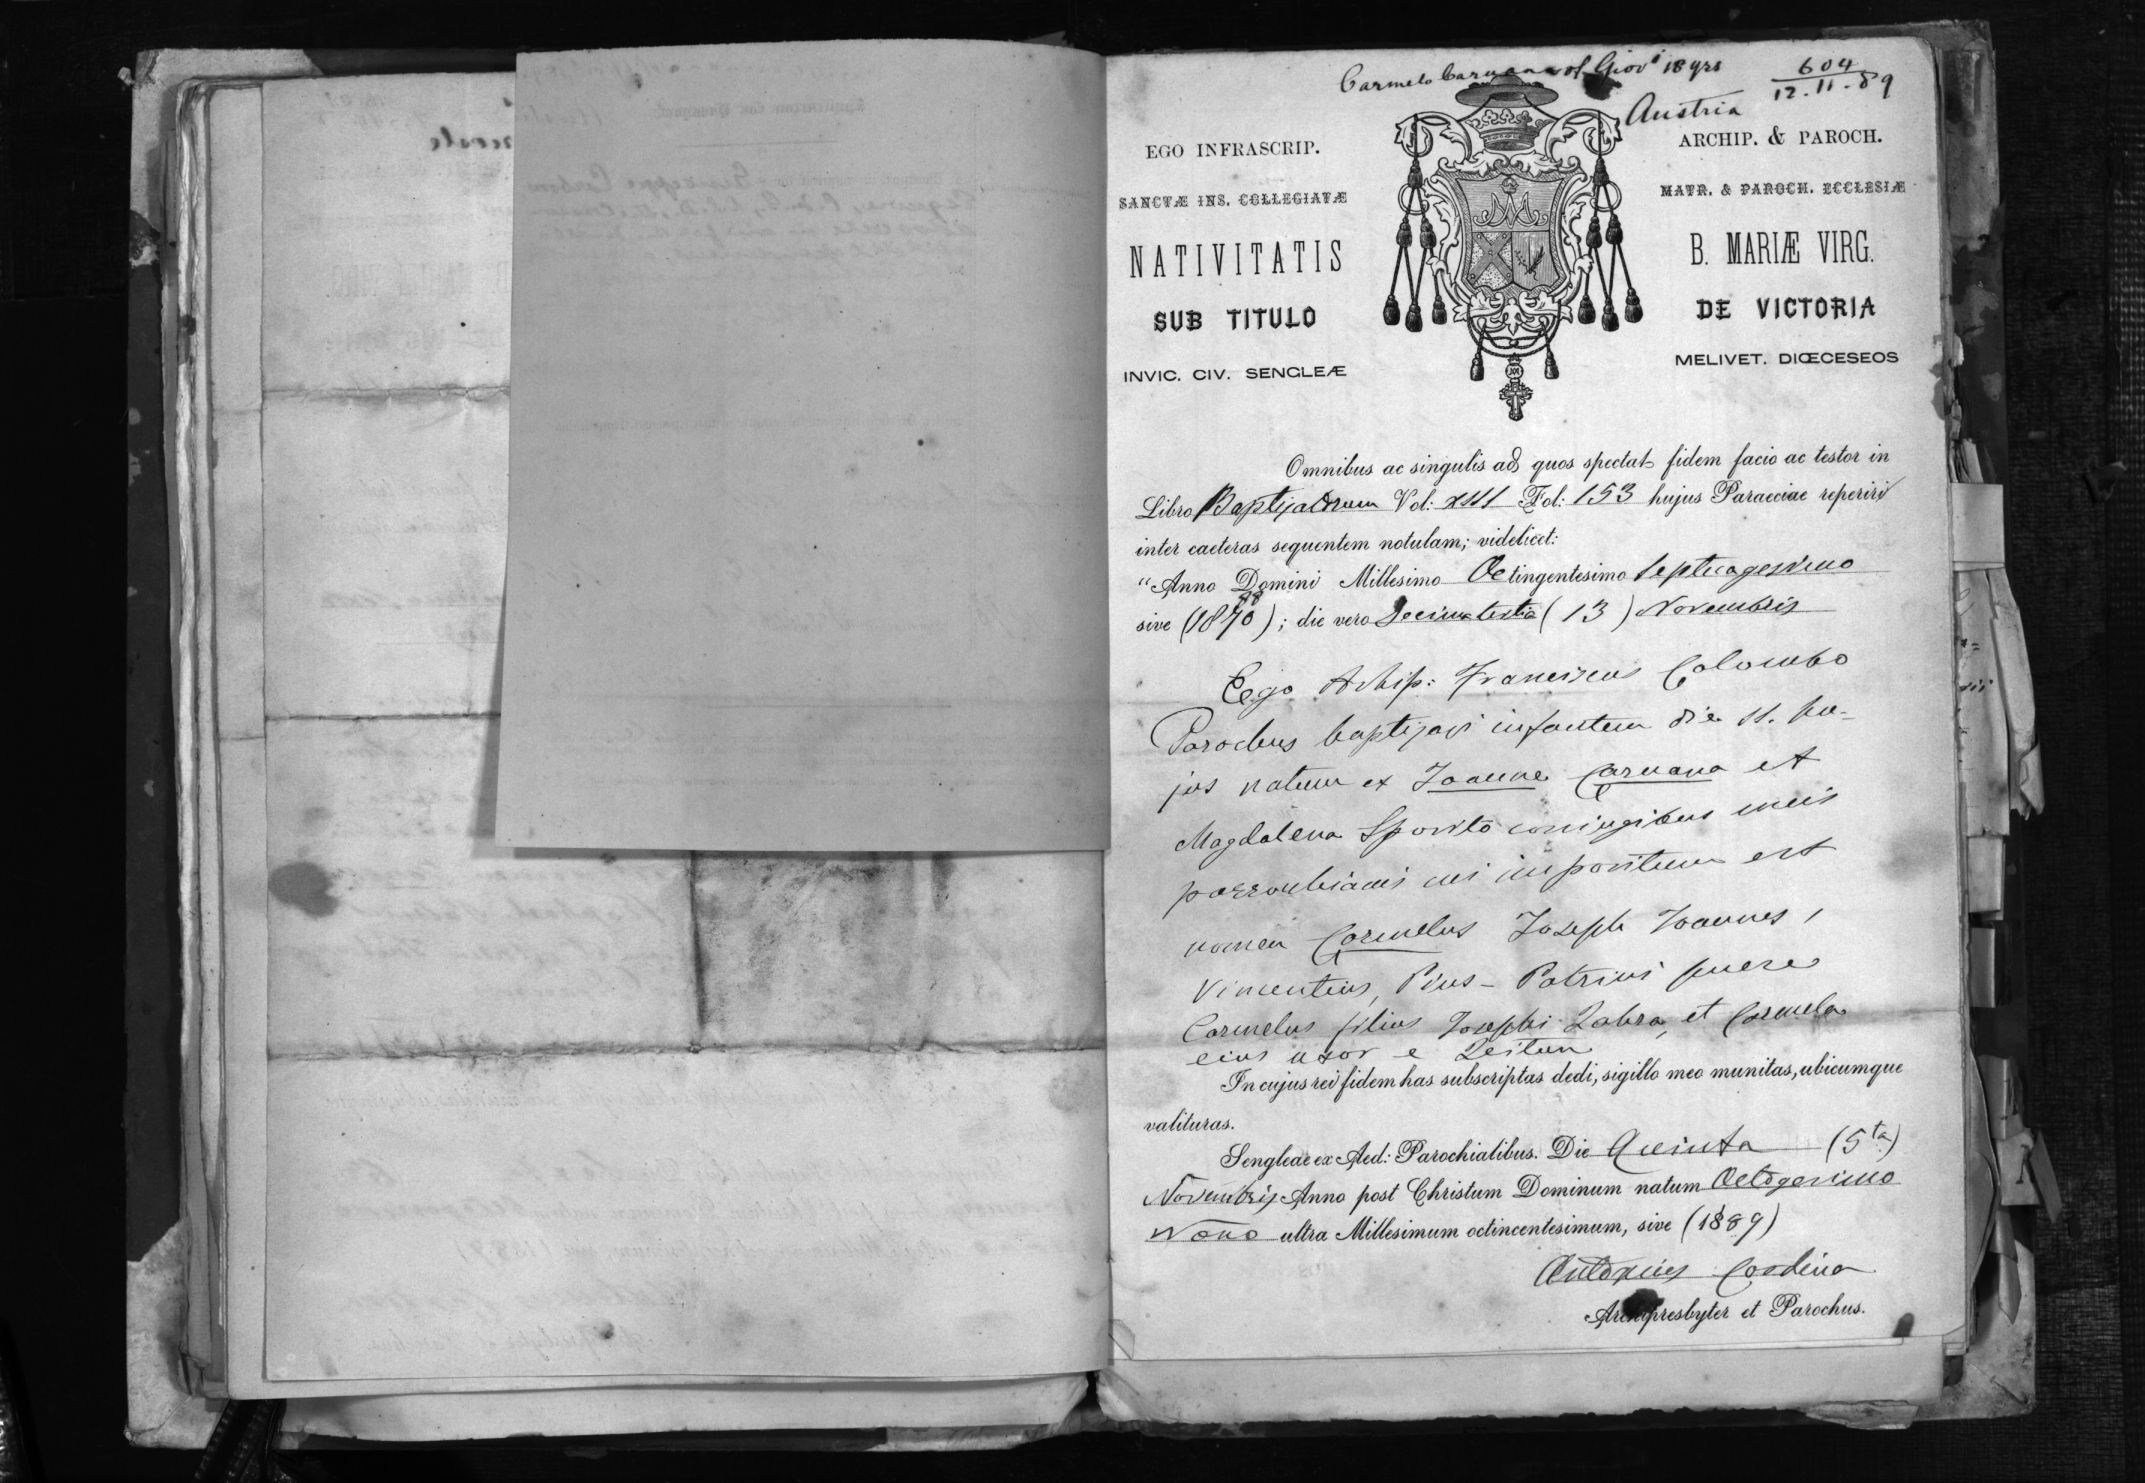 Carmelo Caruana of Giov.i 18 yrs
604
12.11.89
Austria
EGO INFRASCRIP.
SANCTÆ INS. COLLEGIATÆ
NATIVITATIS
SUB TITULO
INVIC. CIV. SENGLEÆ
ARCHIP. & PAROCH.
MATR. & PAROCH. ECCLESIÆ
B. MARIÆ VIRG.
DE VICTORIA
MELIVET. DIŒCESEOS
Omnibus ac singulis ad quos spectat fidem facio ac testor in
Libro Baptizatorum Vol: XIII Fol: 153 hujus Paraeciae reperiri
inter caeteras sequentem notulam; videlicet:
"Anno Domini Millesimo Octingentesimo Septuagesimo
sive (1870); die vero Decimatertia (13) Novembris
Ego Archip: Franciscus Colombo
Parochus baptizavi infantem die 11. hu-
jus natum ex Joanne Caruana et
Magdalena Sposito coniugibus meis
parrochianis cui impositum est
nomen Carmelus Joseph Joannes,
Vincentius, Pius - Patrini fuere
Carmelus filius Josephi Zabra, et Carmela
eius uxor e Zeitun
In cujus rei fidem has subscriptas dedi, sigillo meo munitas, ubicumque
valituras.
Sengleae ex Aed: Parochialibus. Die Quinta (5ta)
Novembris Anno post Christum Dominum natum Octogesimo
Nono ultra Millesimum octincentesimum, sive (1889)
Antonius Cardina
Archipresbyter et Parochus.